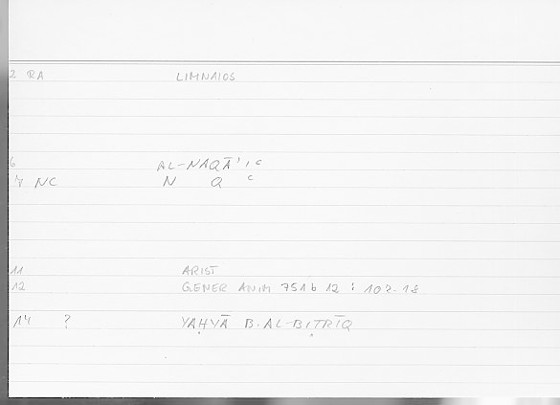 2 RA LIMNAIOS
6 AL-NAQĀ'IʿC
7 NC N Q ʿ
11 ARIST
12 GENER ANIM 751b 12 : 102.18
14 ? YAḤYĀ B. AL-BIṬRĪQ